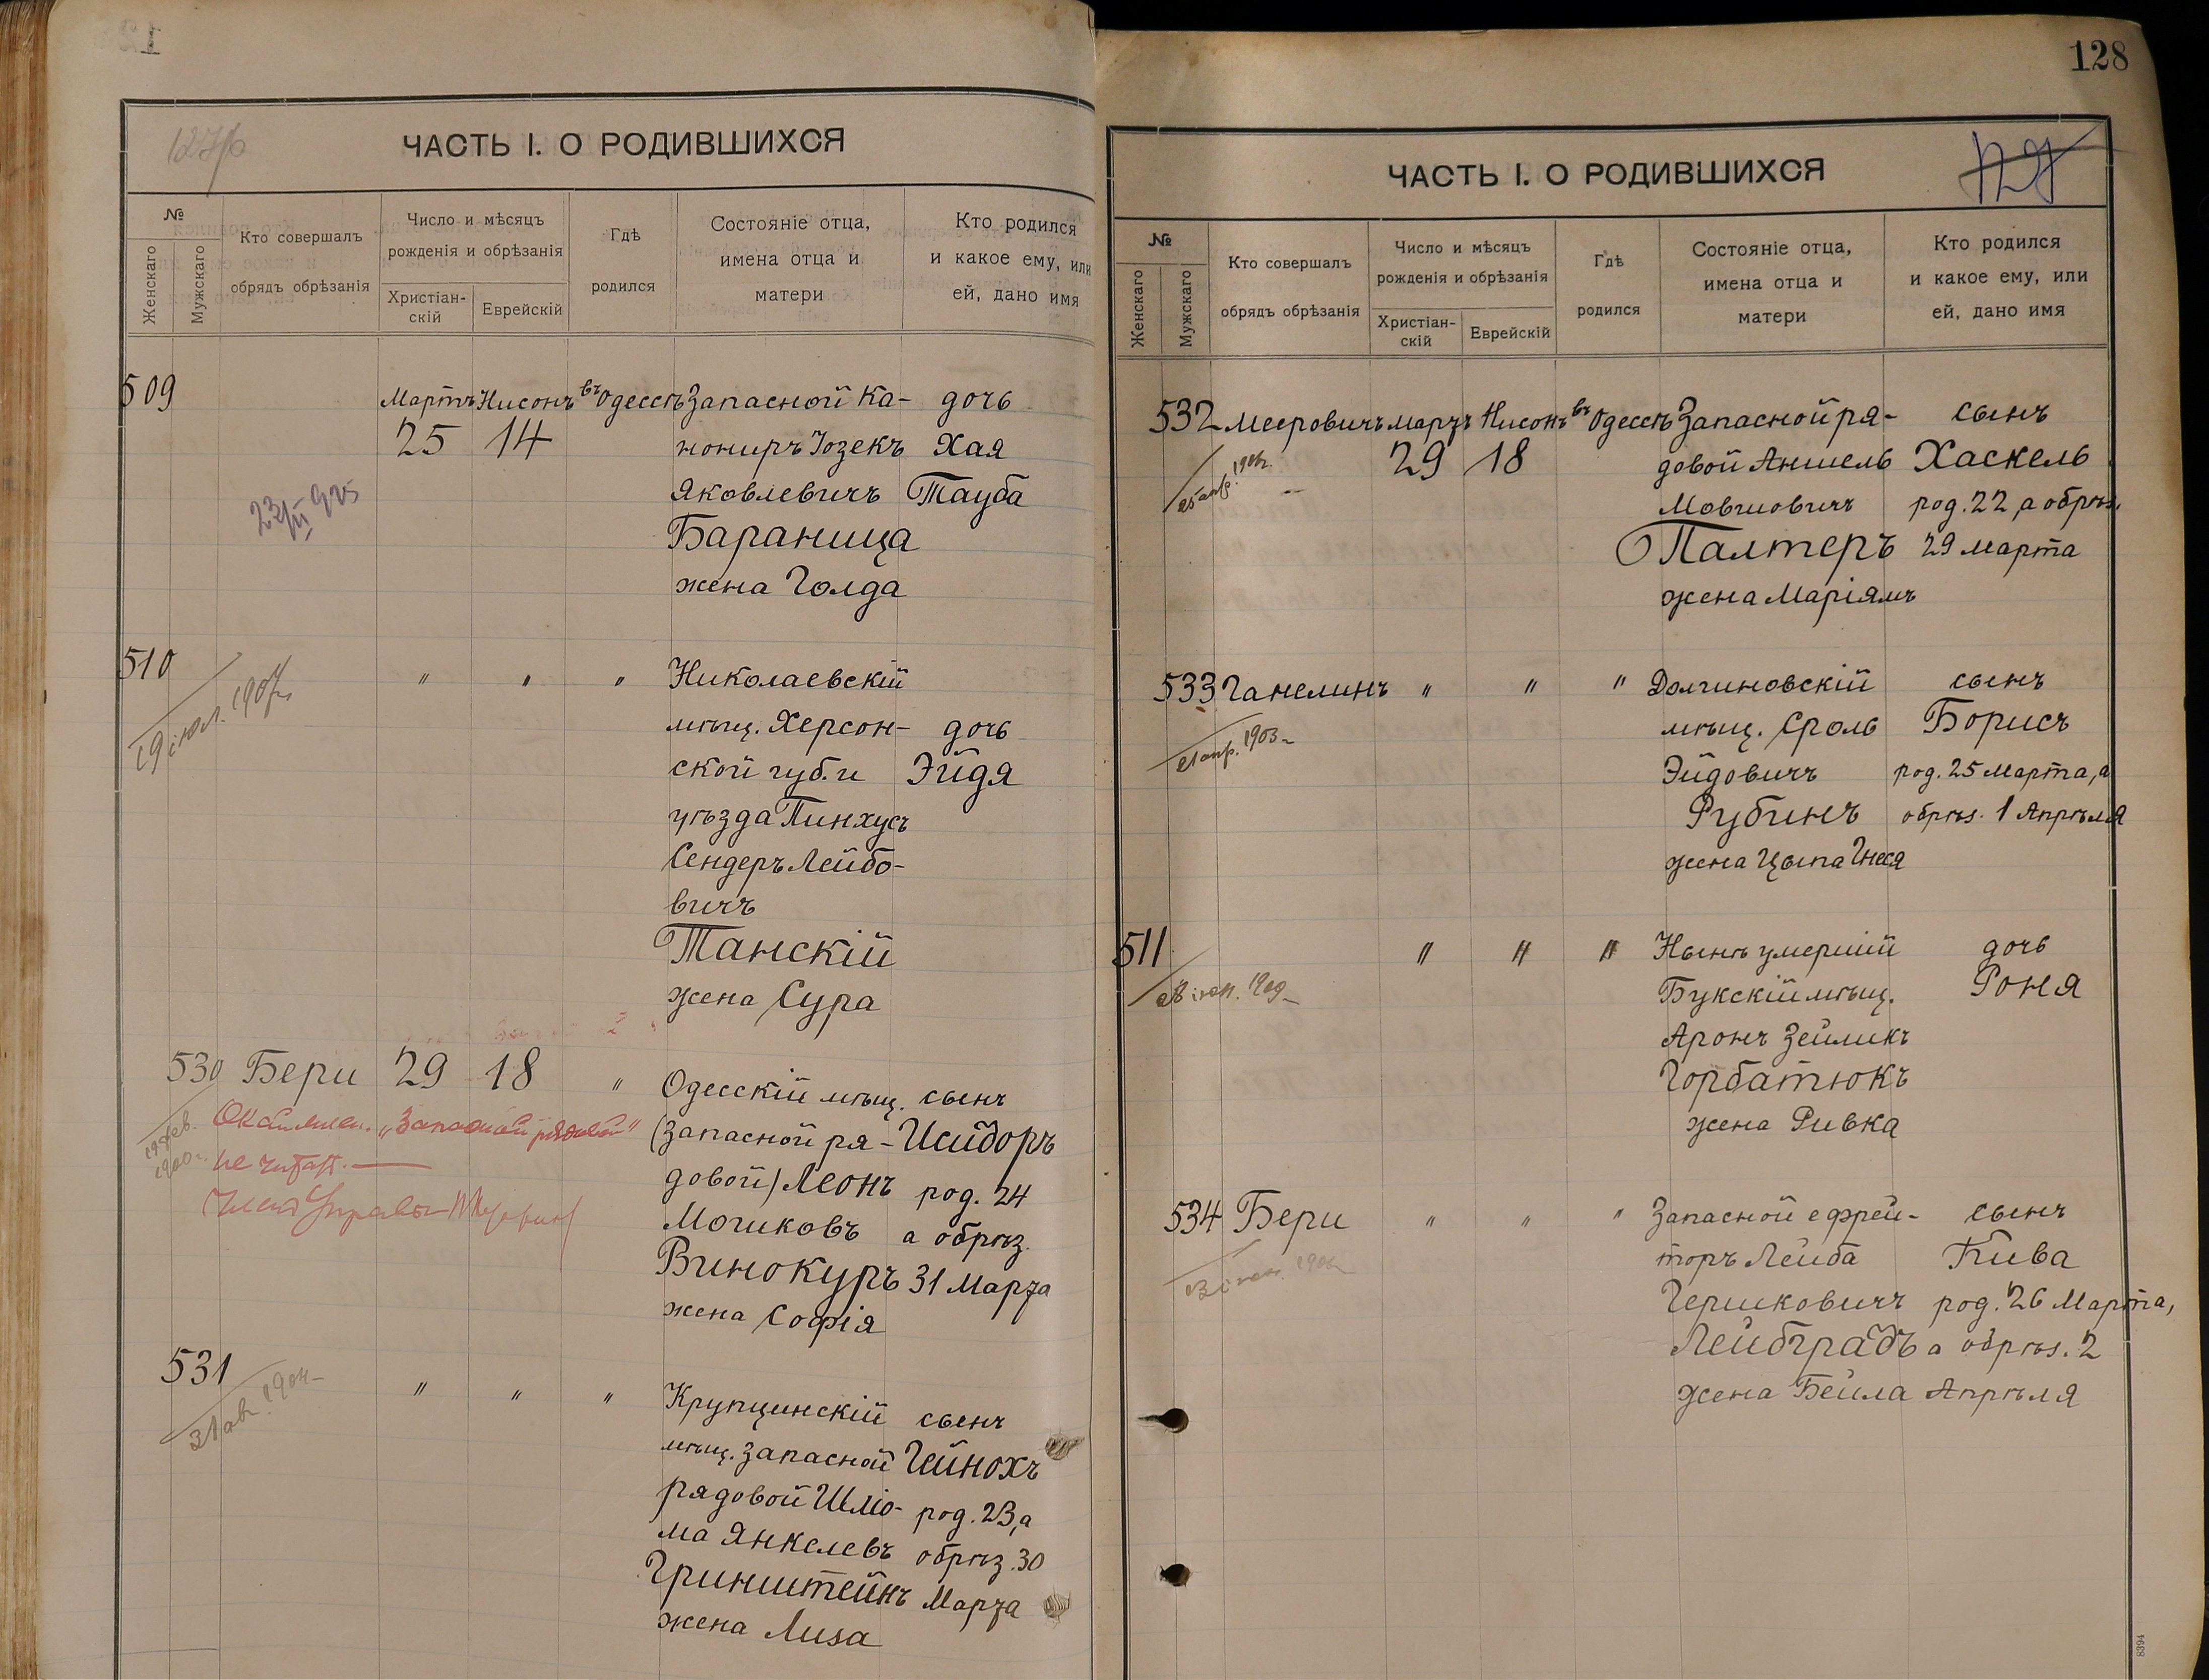 ЧАСТЬ I. О РОДИВШИХСЯ
№
Женскаго
Мужскаго
Кто совершалъ
обрядъ обрѣзанія
Число и мѣсяцъ
рожденія и обрѣзанія
Христіан-
скій
Еврейскій
Гдѣ
родился
Состояніе отца,
имена отца и
матери
Кто родился
и какое ему, или
ей, дано имя
509 Мартъ Нисонъ въ Одессѣ Запасной Ка- дочь
25 14 нониръ Іозекъ Хая
Яковлевичъ Тауба
Бараница
жена Голда
510 " " " Николаевскій
мѣщ. Херсон- дочь
ской губ. и Эйдя
уѣзда Пинхусъ
Сендеръ Лейбо-
вичъ
Танскій
жена Сура
530 Бери 29 18 " Одесскій мѣщ. сынъ
(Запасной ря- Исидоръ
довой) Леонъ род. 24
Мошковъ а обрѣз.
Винокуръ 31 Марта
жена Софія
"Запасной рядовой"
не читать.
531 " " " Крупцинскій сынъ
мѣщ. запасной Гейнохъ
рядовой Шліо- род. 23, а
ма Янкелевъ обрѣз. 30
Гринштейнъ Марта
жена Лиза
128
ЧАСТЬ I. О РОДИВШИХСЯ
№
Женскаго
Мужскаго
Кто совершалъ
обрядъ обрѣзанія
Число и мѣсяцъ
рожденія и обрѣзанія
Христіан-
скій
Еврейскій
Гдѣ
родился
Состояніе отца,
имена отца и
матери
Кто родился
и какое ему, или
ей, дано имя
532 Мееровичъ мартъ Нисонъ въ Одессѣ Запасной ря- сынъ
29 18 довой Аншель Хаскель
Мовшовичъ род. 22, а обрѣз.
Палтеръ 29 марта
жена Маріямъ
533 Ганелинъ " " " Долгиновскій сынъ
мѣщ. Сроль Борисъ
Эйдовичъ род. 25 марта, а
Рубинъ обрѣз. 1 Апрѣля
жена Цыпа Гнеся
21 апр. 1903
511 " " " Нынѣ умершій дочь
Букскій мѣщ. Роня
Аронъ Зейликъ
Горбатюкъ
жена Ривка
534 Бери " " " Запасной ефрей- сынъ
торъ Лейба Кива
Гершковичъ род. 26 Марта,
Лейбградъ а обрѣз. 2
жена Бейла Апрѣля
8394